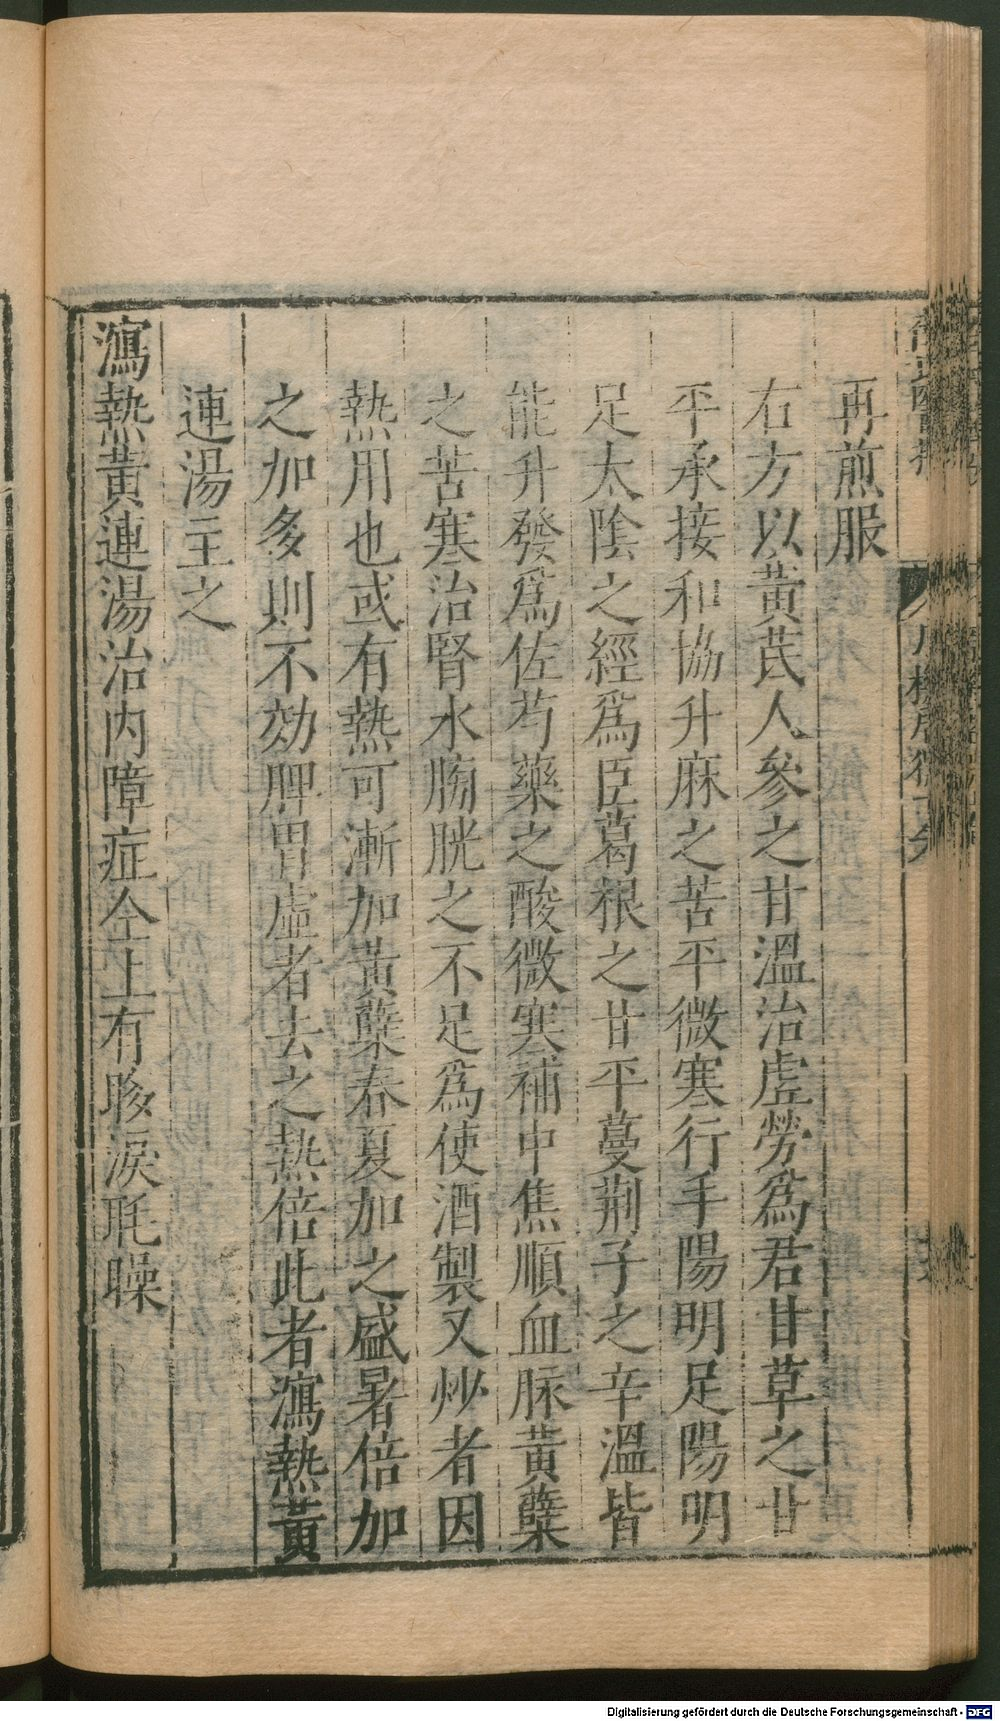 再煎服
右方以黃芪人參之甘溫治虛勞爲君甘草之甘
平承接和協升麻之苦平微寒行手陽明足陽明
足太陰之經爲臣葛根之甘平蔓荆子之辛溫皆
能升發爲佐芍藥之酸微寒補中焦順血脉黃蘗
之苦寒治腎水膀胱之不足爲使酒製又炒者因
熱用也或有熱可漸加黃蘗春夏加之盛暑倍加
之加多則不効脾胃虛者去之熱倍此者瀉熱黃
連湯主之
瀉熱黃連湯治内障症仝上有眵淚眊矂
Digitalisierung gefördert durch die Deutsche Forschungsgemeinschaft - DFG